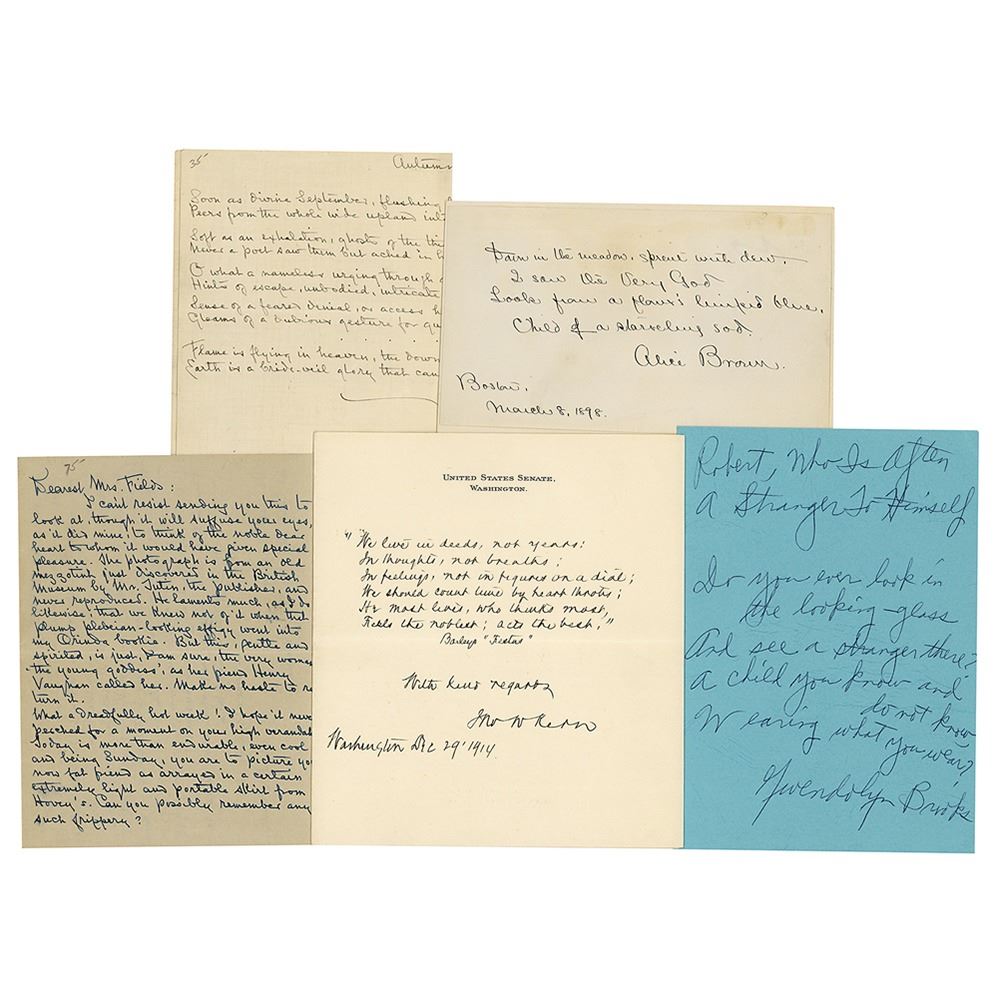 35
Autumn
Soon as divine September, flushing
Peers from the whole wide upland into
Soft as an exhalation, ghosts of the
Never a poet saw them but ached in
O what a nameless urging through
Hints of escape, unbodied, intricate
Sense of a feared denial, or access
Gleams of a dubious gesture for
Flame is flying in heaven, the down
Earth is a bride-veil glory that can
Down in the meadow, sprent with dew,
I saw the Very God
Look from a flower's limpid blue,
Child of a starveling sod.
Alice Brown.
Boston,
March 8, 1898.
75
Dearest Mrs. Fields:
I can't resist sending you this to
look at, though it will suffuse your eyes,
as it did mine, to think of the noble dear
heart to whom it would have given special
pleasure. The photograph is from an old
mezzotint just discovered in the British
Museum by Mr. Tutin, the publisher, and
never reproduced. He laments much, as I do
likewise, that we knew not of it when that
plump plebeian-looking effigy went into
my Orinda bookie. But this, gentle and
spirited, is just, I am sure, the very woman
'the young goddess', as her friend Henry
Vaughan called her. Make no haste to re
turn it.
What a dreadfully hot week! I hope it never
perched for a moment on your high verandah
Today is more than endurable, even cool
and being Sunday, you are to picture yo
now fat friend as arrayed in a certain
extremely light and portable skirt from
Hovey's. Can you possibly remember any
such frippery?
UNITED STATES SENATE,
WASHINGTON.
"We live in deeds, not years:
In thoughts, not breaths;
In feelings, not in figures on a dial;
We should count time by heart throbs;
He most lives, who thinks most,
Feels the noblest; acts the best."
Baileys "Festus"
With kind regards
Jno W Kern
Washington Dec 29' 1914
Robert, Who Is Often
A Stranger To Himself
Do you ever look in
the looking-glass
And see a stranger there?
A child you know and
do not know
Wearing what you wear?
Gwendolyn Brooks